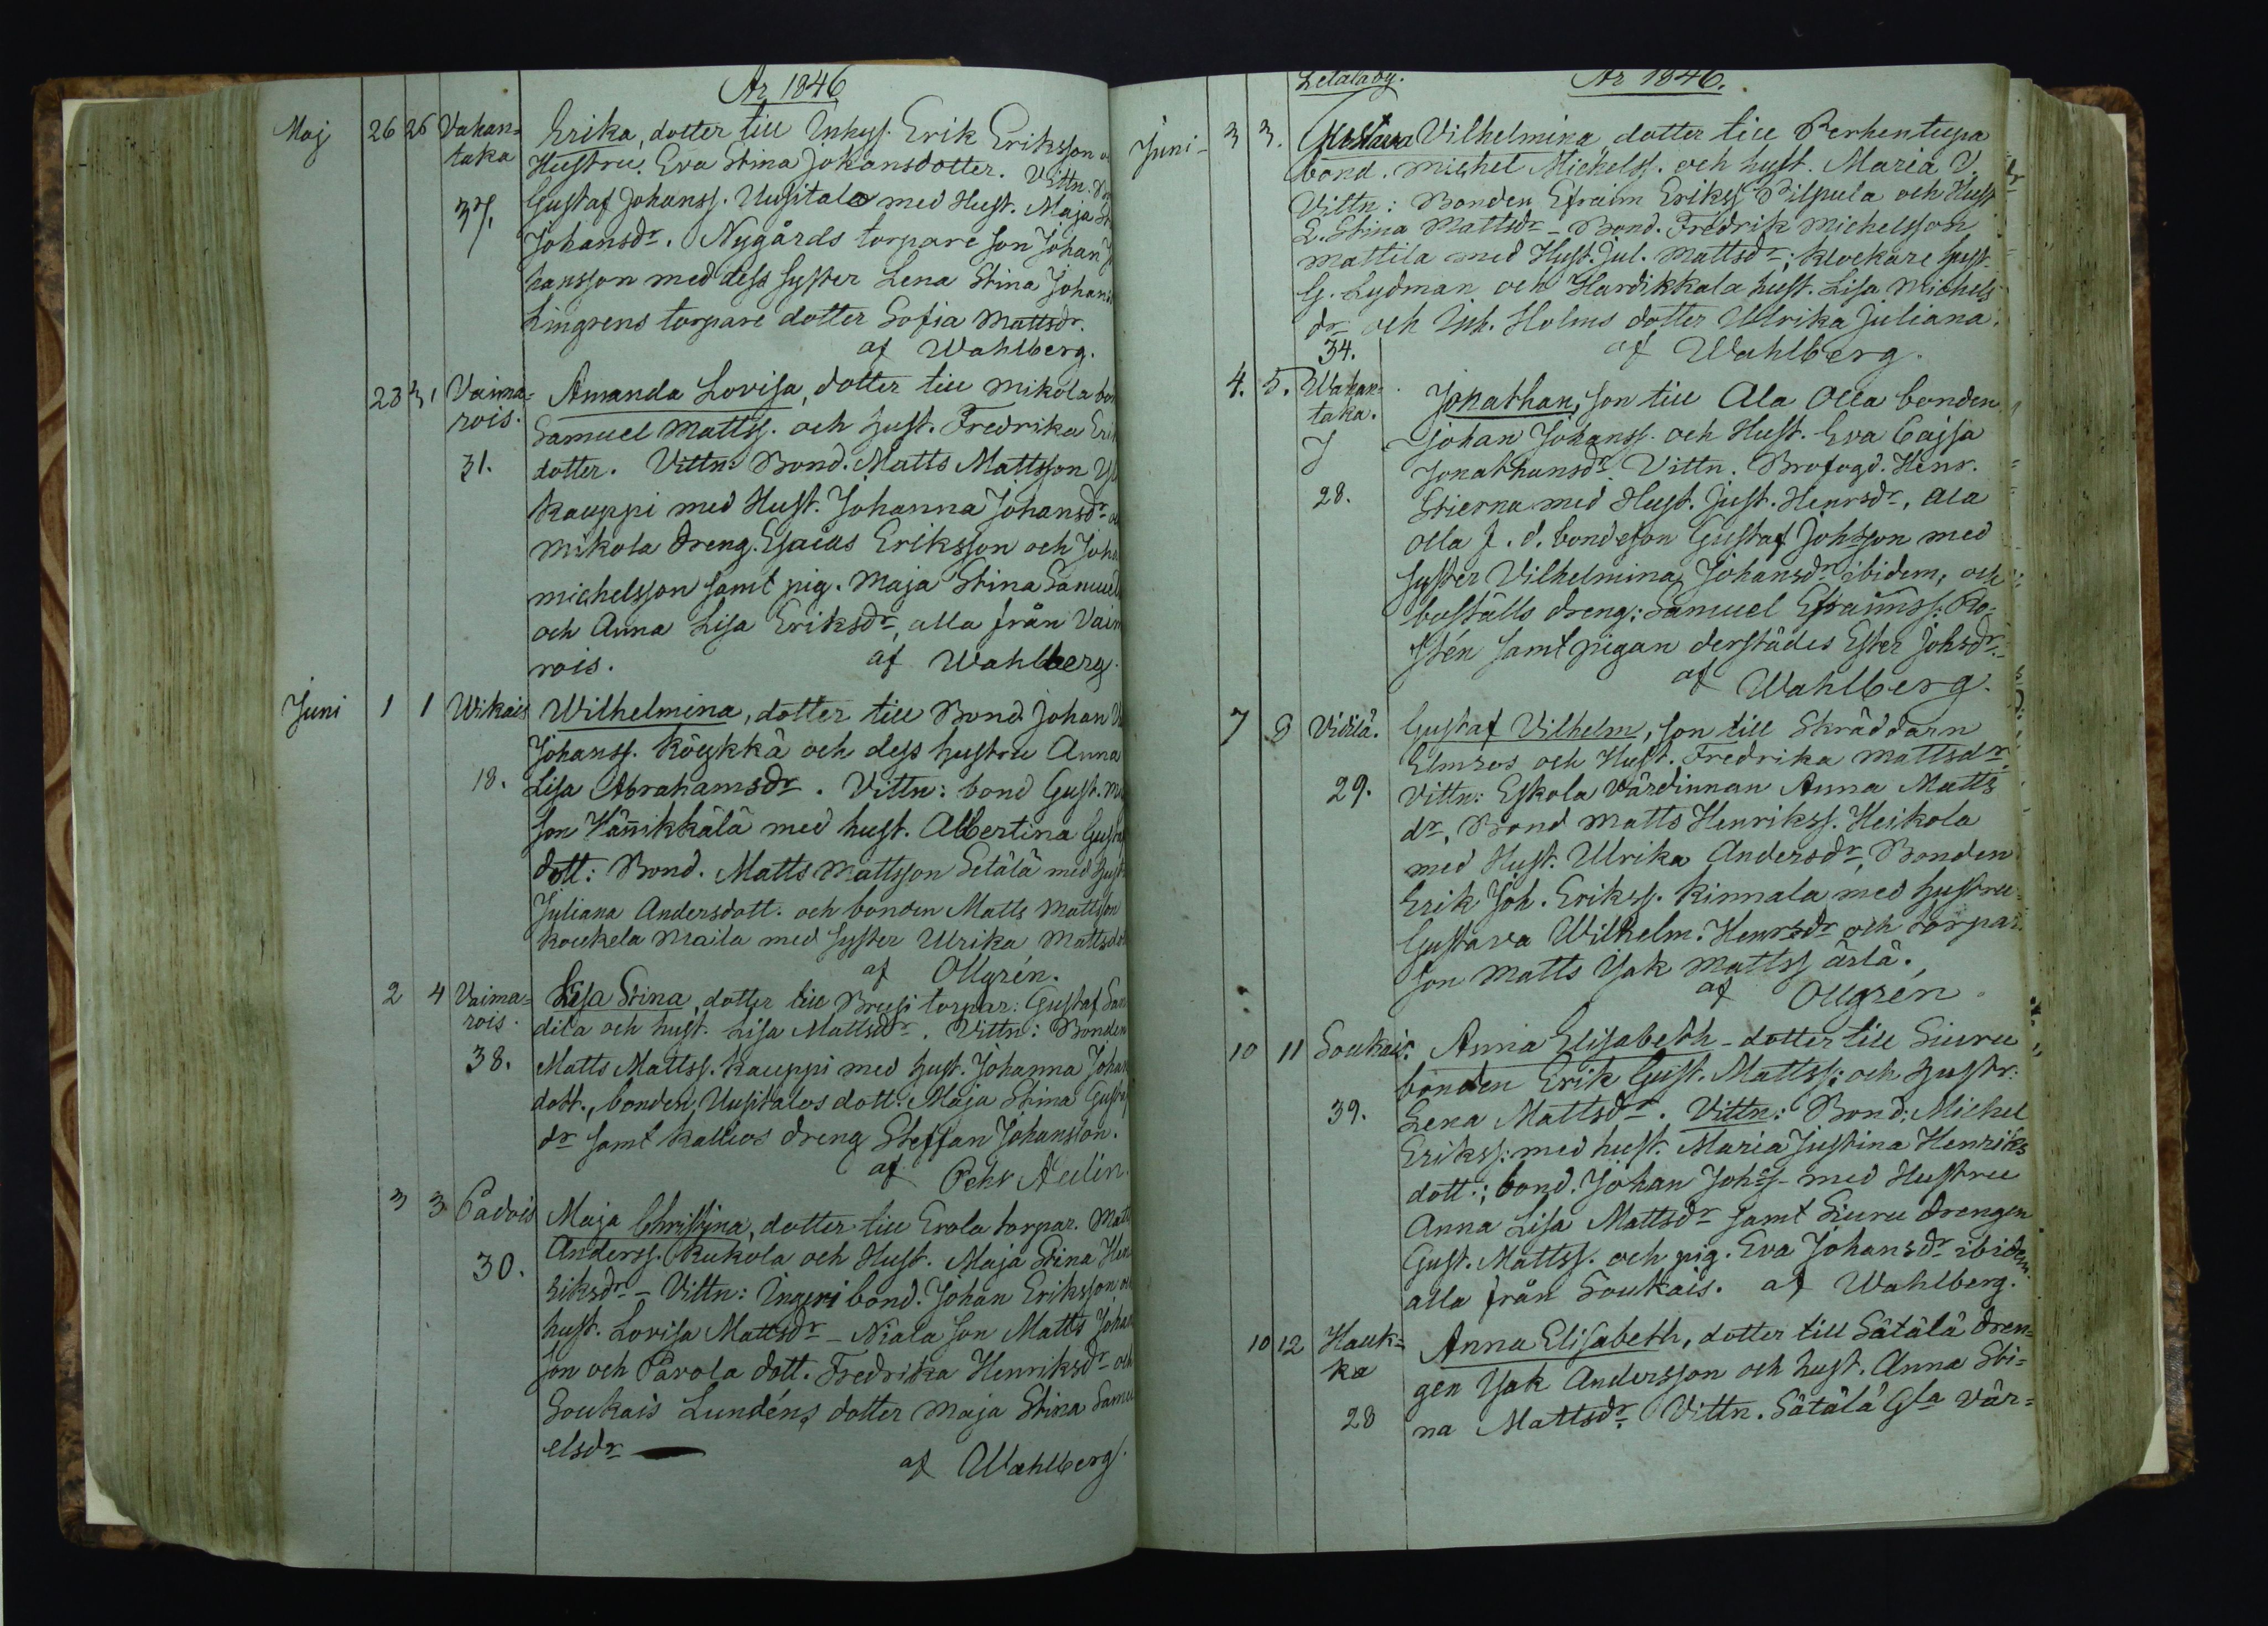 År 1846
Maj 26 26 Vahan= Erika, dotter till Inhys. Erik Eriksson
taka Hustru. Eva Stina Johansdotter. Vittn.
37. Gustaf Johanss. Uusitalo med Hust. Maja
Johansdr. Nygårds torpare son Johan
hansson med dess syster Lena Stina Johan
Lingrens torpare dotter Sofia Mattsdr.
af Wahlberg.
28 31 Vaima= Amanda Lovisa, dotter till Mikola
rois. Samuel Mattss. och hust. Fredrika
31. dotter. Vittn: Bond. Matts Mattsson
Kauppi med Hust. Johanna Johansdr
Mikola dreng. Esaias Eriksson och
michelsson samt pig. Maja Stina
och Anna Lisa Eriksdr, alla från
rois. af Wahlberg.
Juni 1 1 Wikais Wilhelmina, dotter till Bond Johan
Johanss. Köykkä och dess hustru Anna
18. Lisa Abrahamsdr. Vittn: bond Gust.
son Hännikkälä med hust. Albertina
dott: Bond. Matts Mattsson Setälä med
Juliana Andersdott. och bonden Matts Mattsson
koukela Maila med syster Ulrika
af Ollgrén.
2 4 Vaima= Lisa Stina, dotter till Brusi torpar: Gustaf
rois. dila och hust. Lisa Mattsdr. Vittn: Bonden
38. Matts Mattss. Kauppi med hust. Johanna
dott., bonden Uusitalos dott: Maja Stina
dr samt Kallios dreng Steffan Johansson.
af Pehr
3 3 Padois Maja Christina, dotter till Erola torpar.
Anderss. Kukola och Hust. Maja Stina
30. riksdr - Vittn: Ingeri bond. Johan Eriksson
hust. Lovisa Mattsdr - Niala son Matts
son och Pavola dott. Fredrika Henriksdr och
Soukais Lundéns dotter Maja Stina
elsdr
af Wahlberg.
Letalaby. År 1846.
Juni - 3 3. Gustava Vilhelmina dotter till Perhentupa
bond. Michel Michelss. och hust. Maria
Vittn: Bonden Efraim Erikss Pilpula och Hust
E. Stina Mattsdr - Bond. Fredrik Michelsson
Mattila med Hust. Jul. Mattsdr; klockare hust.
G. Lydman och Hardikkala hust. Lisa Michels
dr och Inh. Holms dotter Ulrika Juliana.
34. af Wahlberg.
4. 5. Wahan=
taka. Jonathan, son till Ala Olla bonden
Johan Johanss. och Hust. Eva Cajsa
Jonathansdr Vittn. Brofogd. Henr.
28. Stierna med Hust. Just. Henrsdr, Ala
Olla f. d. bondeson Gustaf Johsson med
syster Vilhelmina Johansdr ibidem, och
boställs dreng: Samuel Efraimss:
stén samt pigan derstädes Ester Johsdr.
af Wahlberg.
7 9 Vidilä. Gustaf Vilhelm, son till Skräddarn
Elmros och Hust. Fredrika Mattsdr.
29. Vittn: Eskola värdinnan Anna Matts
dr, Bond Matts Henrikss. Heikola
med Hust. Ulrika Andersdr, Bonden
Erik Joh. Erikss. Kinnala med hustru
Gustava Wilhelm. Henrsdr och torpar
son Matts Isak Mattss ärlä.
af Ollgrén.
10 11 Soukais. Anna Elisabeth - dotter till Siuru
bonden Erik Gust. Mattss: och hustr:
39. Lena Mattsdr. Vittn: Bond: Michel
Erikss: med hust. Maria Justina Henriks
dott:; bond. Johan Johss - med Hustru
Anna Lisa Mattsdr samt Siuru drengen
Gust. Mattss. och pig. Eva Johansdr ibidem.
alla från Soukais. af Wahlberg.
10 12 Hauk= Anna Elisabeth, dotter till Sätälä dren=
ka gen Isak Andersson och hust. Anna Sti=
28 na Mattsdr. Vittn. Sätälä Gla vär=